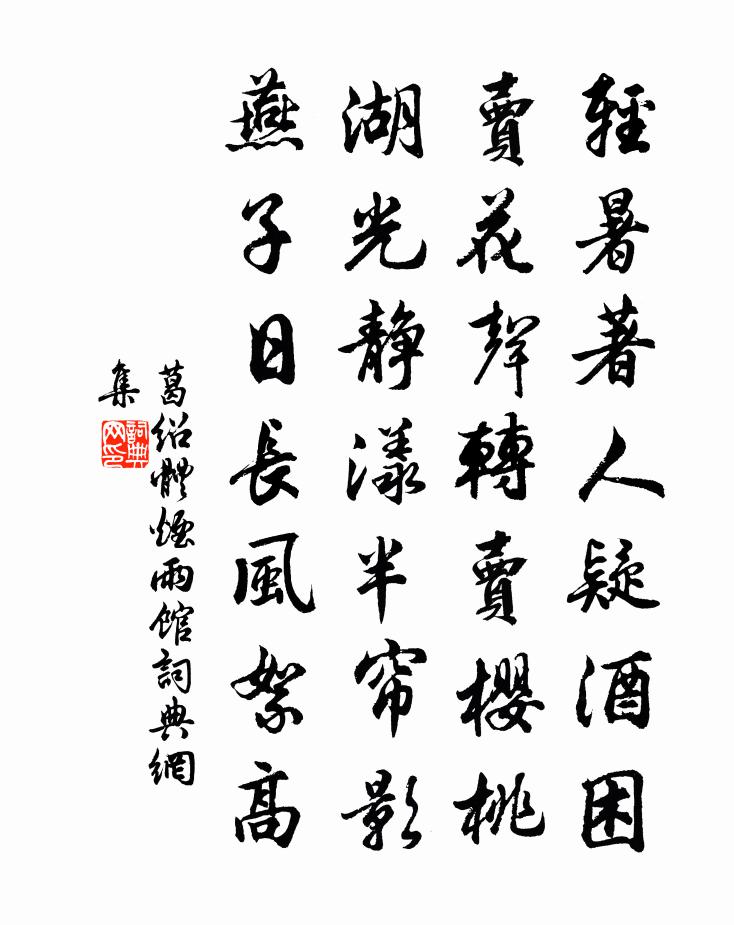 輕暑著人疑酒困
賣花聲轉賣櫻桃
湖光静漾半帘影
燕子日長風絮高
葛紹體煙雨館詞典網
集
詞典
网印